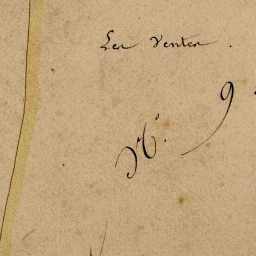 Les Ventes.
N.° 9.